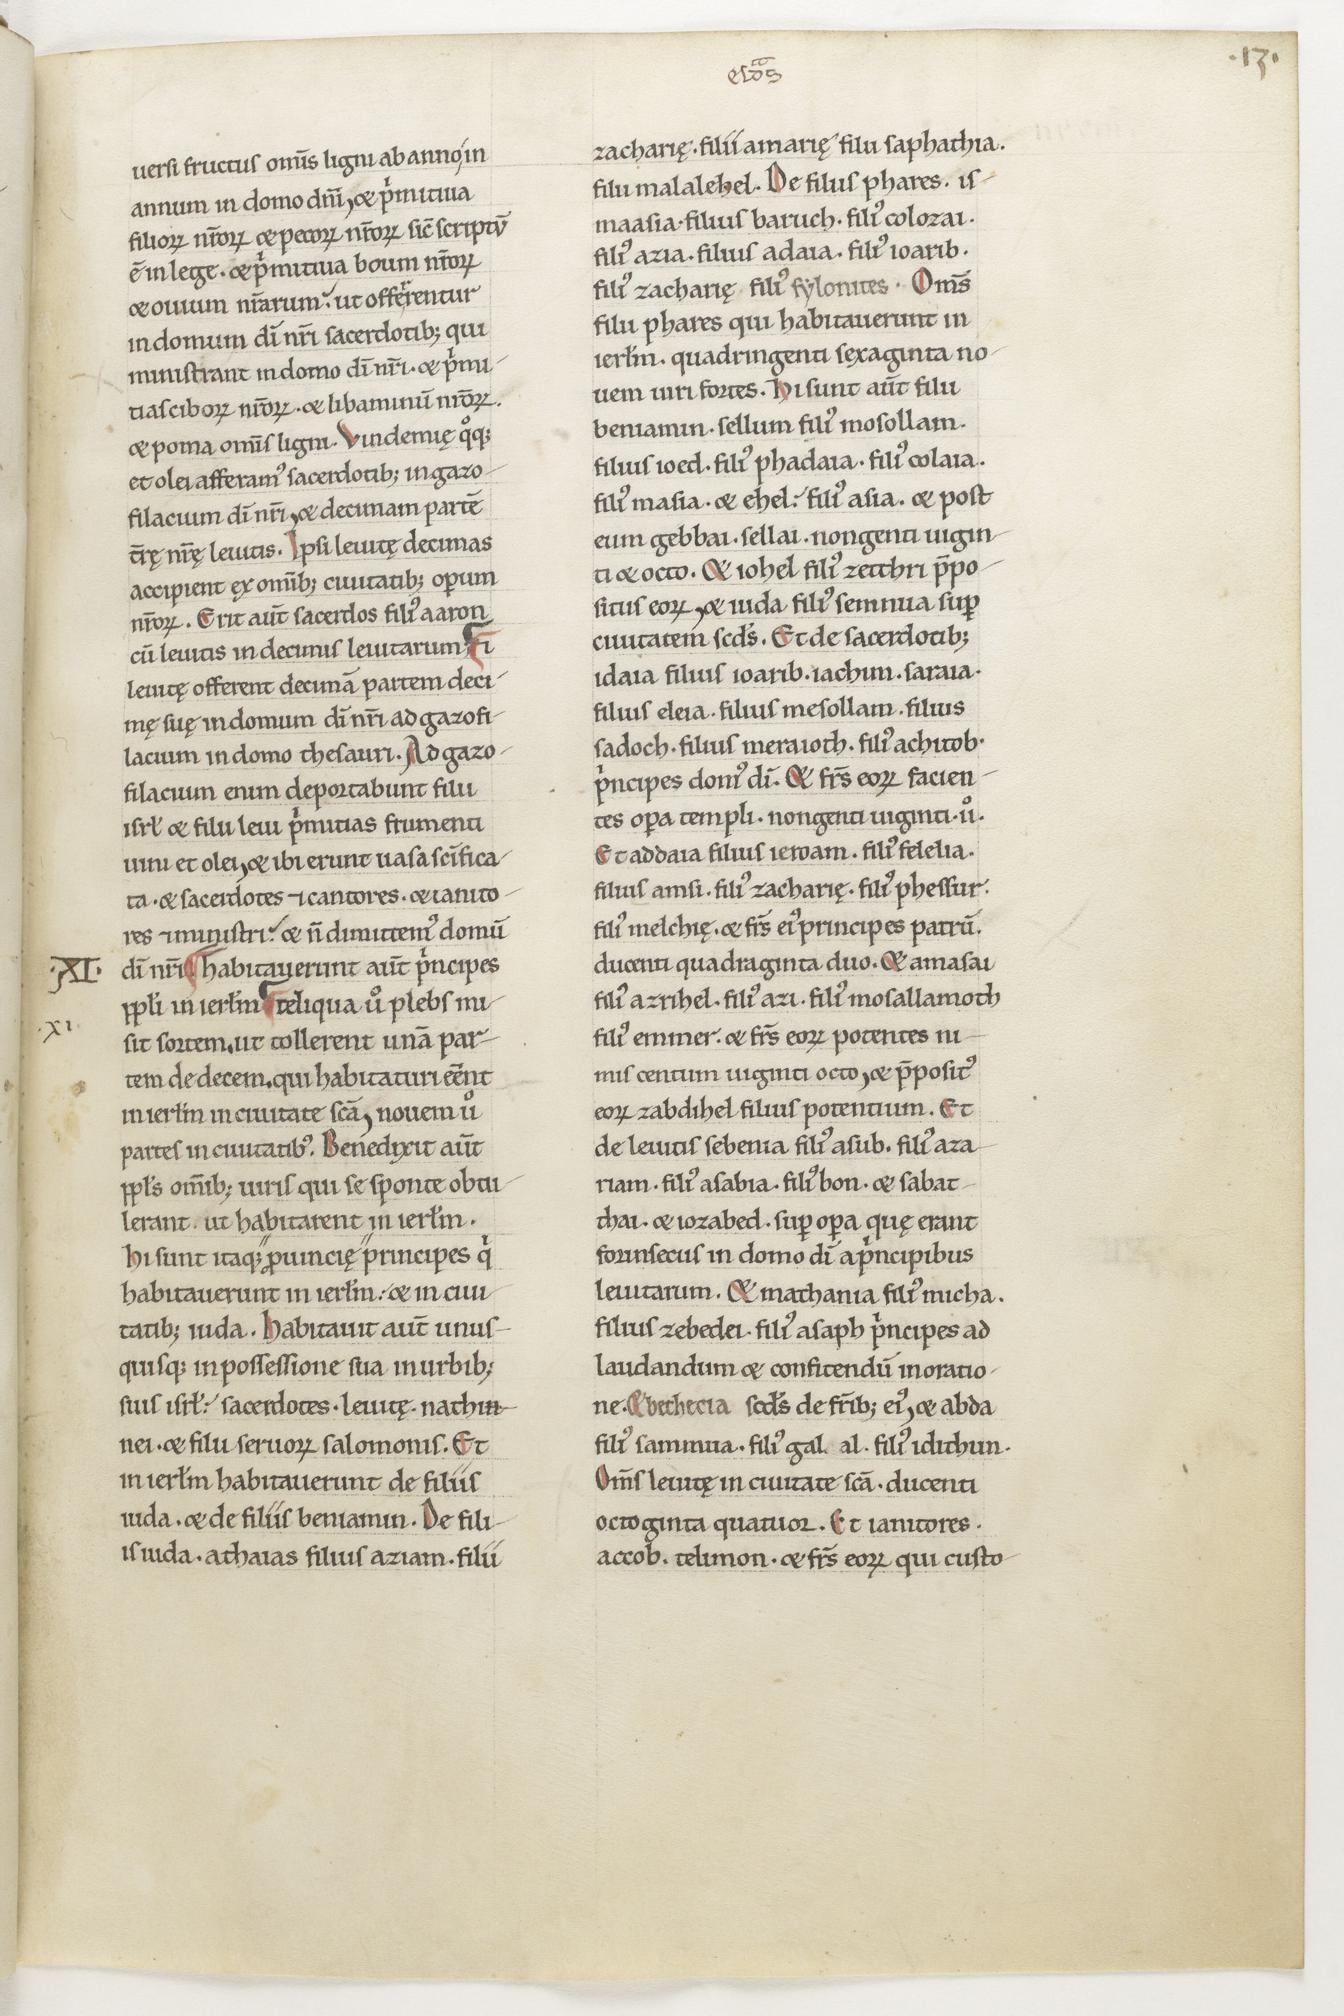 ·13·
uersi fructus om̄s ligni ab anno in
annum in domo dn̄i, & p̍mitiua
filioꝝ nr̄oꝝ & pecoꝝ nr̄oꝝ sic̄ scriptū
ē in lege. & p̍mitiua boum nr̄oꝝ
& ouium nr̄arum: ut offerrentur
in domum dī nr̄i sacerdotib; qui
ministrant in domo dī nr̄i. & p̍mi-
tias ciboꝝ nr̄oꝝ. & libaminū nr̄oꝝ.
& poma om̄is ligni. Vindemię qͦq;
et olei afferamꝰ sacerdotib; in gazo-
filacium dī nr̄i, & decimam partē
t̄rę nr̄ę leuitis. Ipsi leuitę decimas
accipient ex om̄ib; ciuitatib; operum
nr̄oꝝ. Erit aut̄ sacerdos filiꝰ aaron
cū leuitis in decimis leuitarum. Et
leuitę offerent decimā partem deci-
mę suę in domum dī nr̄i ad gazofi-
lacium in domo thesauri. Ad gazo-
filacium enim deportabunt filii
isrł & filii leui p̍mitias frumenti
uini et olei, & ibi erunt uasa scīfica-
ta. & sacerdotes ⁊ cantores. & ianito-
res ⁊ ministri: & n̄ dimittemꝰ domū
dī nr̄i. habitauerunt aut̄ p̍ncipes
·XI·
ppłi in ierłm. reliqua uͦ plebs mi-
·xi
sit sortem, ut tollerent unā par-
tem de decem, qui habitaturi eēnt
in ierłm in ciuitate scā, nouem uͦ
partes in ciuitatibꝰ. Benedixit aut̄
ppłs om̄ib; uiris qui se sponte obtu-
lerant. ut habitarent in ierłm.
hi sunt itaq; ꝓuincię principes q̍
habitauerunt in ierłm: & in ciui-
tatib; iuda. Habitauit aut̄ unus-
quisq; in possessione sua in urbib;
suis isrł: sacerdotes. leuitę. nathin-
nei. & filii seruoꝝ salomonis. Et
in ierłm habitauerunt de filiis
iuda. & de filiis beniamin. De fili-
is iuda. athaias filius aziam. filii
zacharię. filii amarię filii saphathia.
filii malalehel. De filiis phares. is-
maasia. filius baruch. filiꝰ colozai.
filiꝰ azia. filius adaia. filiꝰ ioarib.
filiꝰ zacharię filiꝰ sylonites. Om̄s
filii phares qui habitauerunt in
ierłm. quadringenti sexaginta no-
uem uiri fortes. Hi sunt aut̄ filii
beniamin. sellum filiꝰ mosollam.
filius ioed. filiꝰ phadaia. filiꝰ colaia.
filiꝰ masia. & ehel: filiꝰ asia. & post
eum gebbai. sellai. nongenti uigin-
ti & octo. & iohel filiꝰ zecchri p̄po-
situs eoꝝ, & iuda filiꝰ sennua sup̱
ciuitatem scd̄s. Et de sacerdotib;
idaia filius ioarib. iachin. saraia.
filius eleia. filius mesollam. filius
sadoch. filius meraioth. filiꝰ achitob.
p̍ncipes domꝰ dī. & fr̄s eoꝝ facien-
tes op̱a templi. nongenti uiginti. uͦ.
Et addaia filius ieroam. filiꝰ felelia.
filius amsi. filiꝰ zacharię. filiꝰ phessur.
filiꝰ melchię. & fr̄s eiꝰ principes patrū.
ducenti quadraginta duo. & amasai
filiꝰ azrihel. filiꝰ azi. filiꝰ mosallamoth
filiꝰ emmer. & fr̄s eoꝝ potentes ni-
mis centum uiginti octo, & p̄positꝰ
eoꝝ zabdihel filius potentium. Et
de leuitis sebenia filiꝰ asub. filiꝰ aza-
riam. filiꝰ asabia. filiꝰ bon. & sabat-
thai. & iozabed. sup̱ op̱a quę erant
forinsecus in domo dī a p̍ncipibus
leuitarum. & mathania filiꝰ micha.
filius zebedei. filiꝰ asaph p̍ncipes ad
laudandum & confitendū in oratio-
ne. & bethecia scd̄s de fr̄ib; eiꝰ, & abda
filiꝰ sammua. filiꝰ gal al. filiꝰ idithun.
Om̄s leuitę in ciuitate scā. ducenti
octoginta quatuor. Et ianitores.
accob. telmon. & fr̄s eoꝝ qui custo-